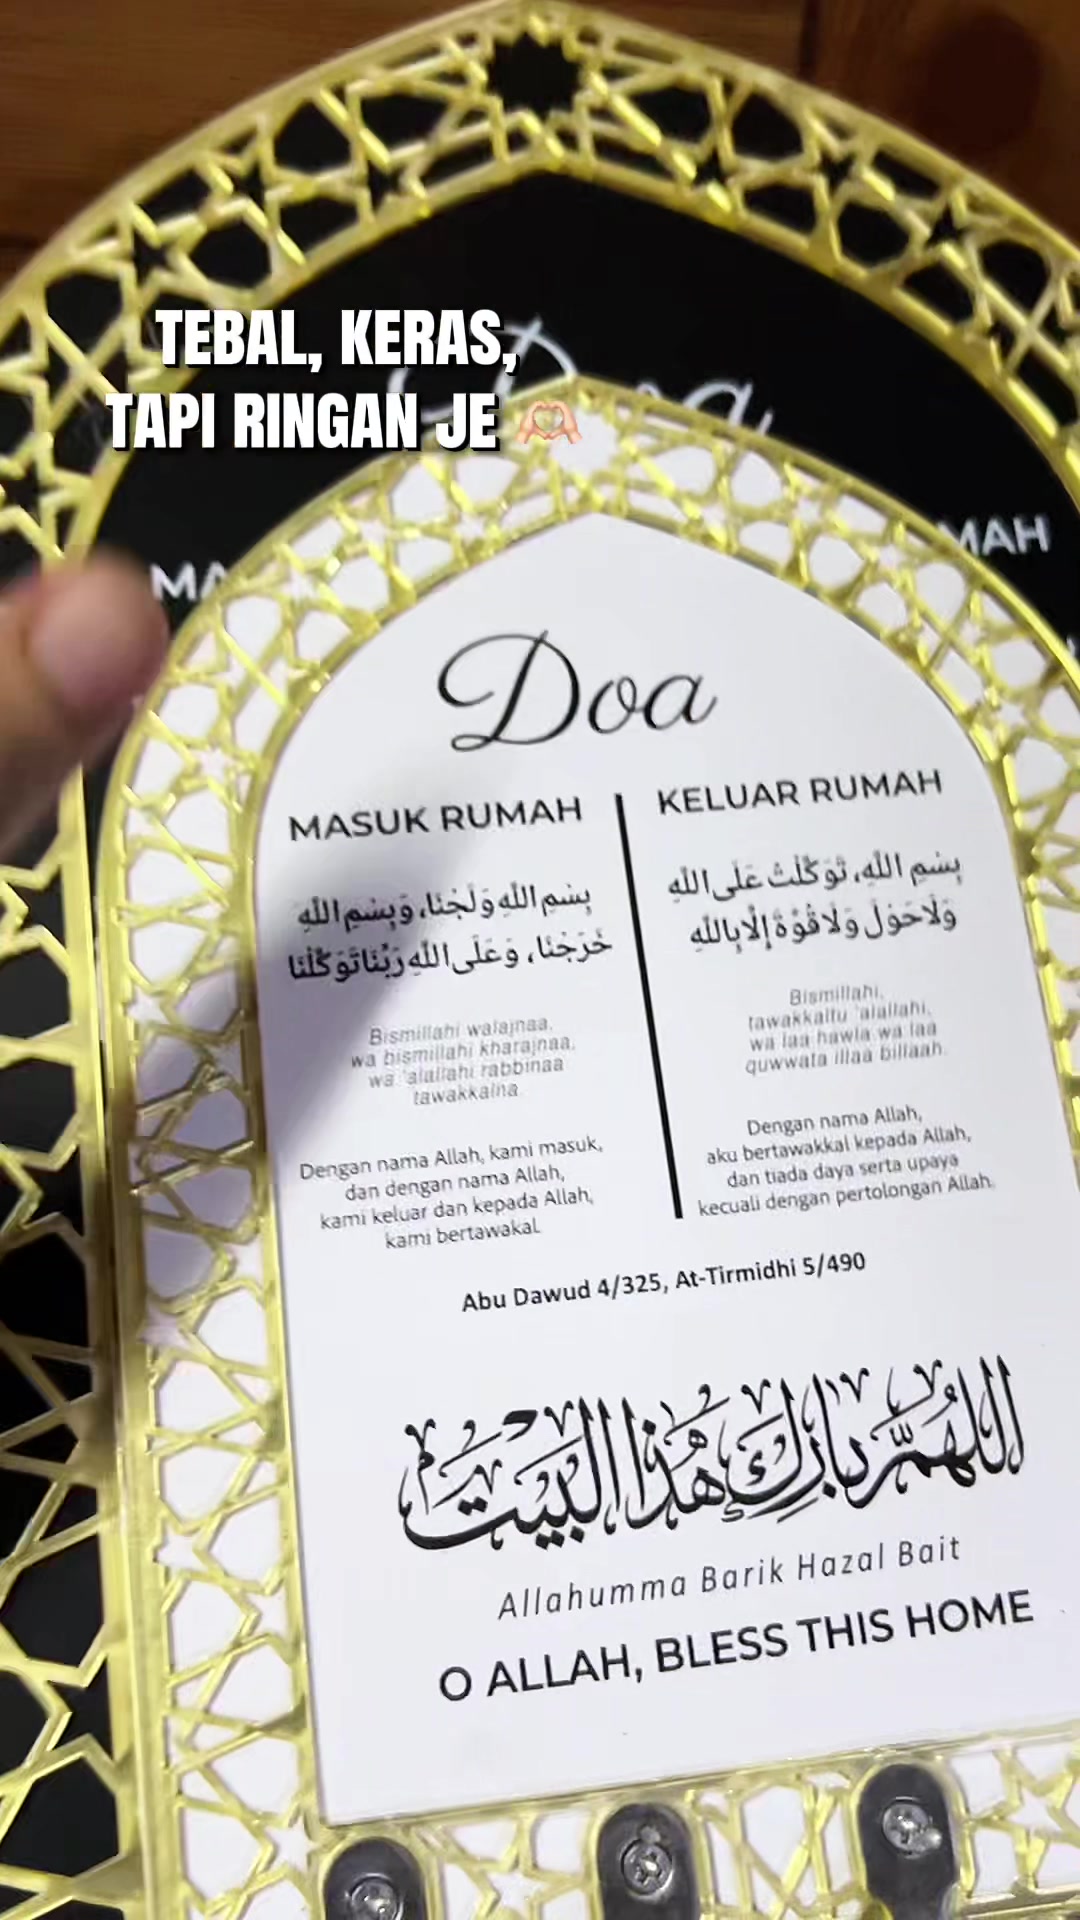 TEBAL, KERAS,
TAPI RINGAN JE 🫶🏻
Doa
MASUK RUMAH
بِسْمِ اللَّهِ وَلَجْنَا، وَبِسْمِ اللَّهِ
خَرَجْنَا، وَعَلَى اللَّهِ رَبِّنَا تَوَكَّلْنَا
Bismillahi walajnaa,
wa bismillahi kharajnaa,
wa 'alallahi rabbinaa
tawakkalna.
Dengan nama Allah, kami masuk,
dan dengan nama Allah,
kami keluar dan kepada Allah,
kami bertawakal.
KELUAR RUMAH
بِسْمِ اللَّهِ، تَوَكَّلْتُ عَلَى اللَّهِ
وَلَا حَوْلَ وَلَا قُوَّةَ إِلَّا بِاللَّهِ
Bismillahi,
tawakkaltu 'alallahi,
wa laa hawla wa laa
quwwata illaa billaah.
Dengan nama Allah,
aku bertawakkal kepada Allah,
dan tiada daya serta upaya
kecuali dengan pertolongan Allah.
Abu Dawud 4/325, At-Tirmidhi 5/490
اللَّهُمَّ بَارِكْ هٰذَا الْبَيْتَ
Allahumma Barik Hazal Bait
O ALLAH, BLESS THIS HOME